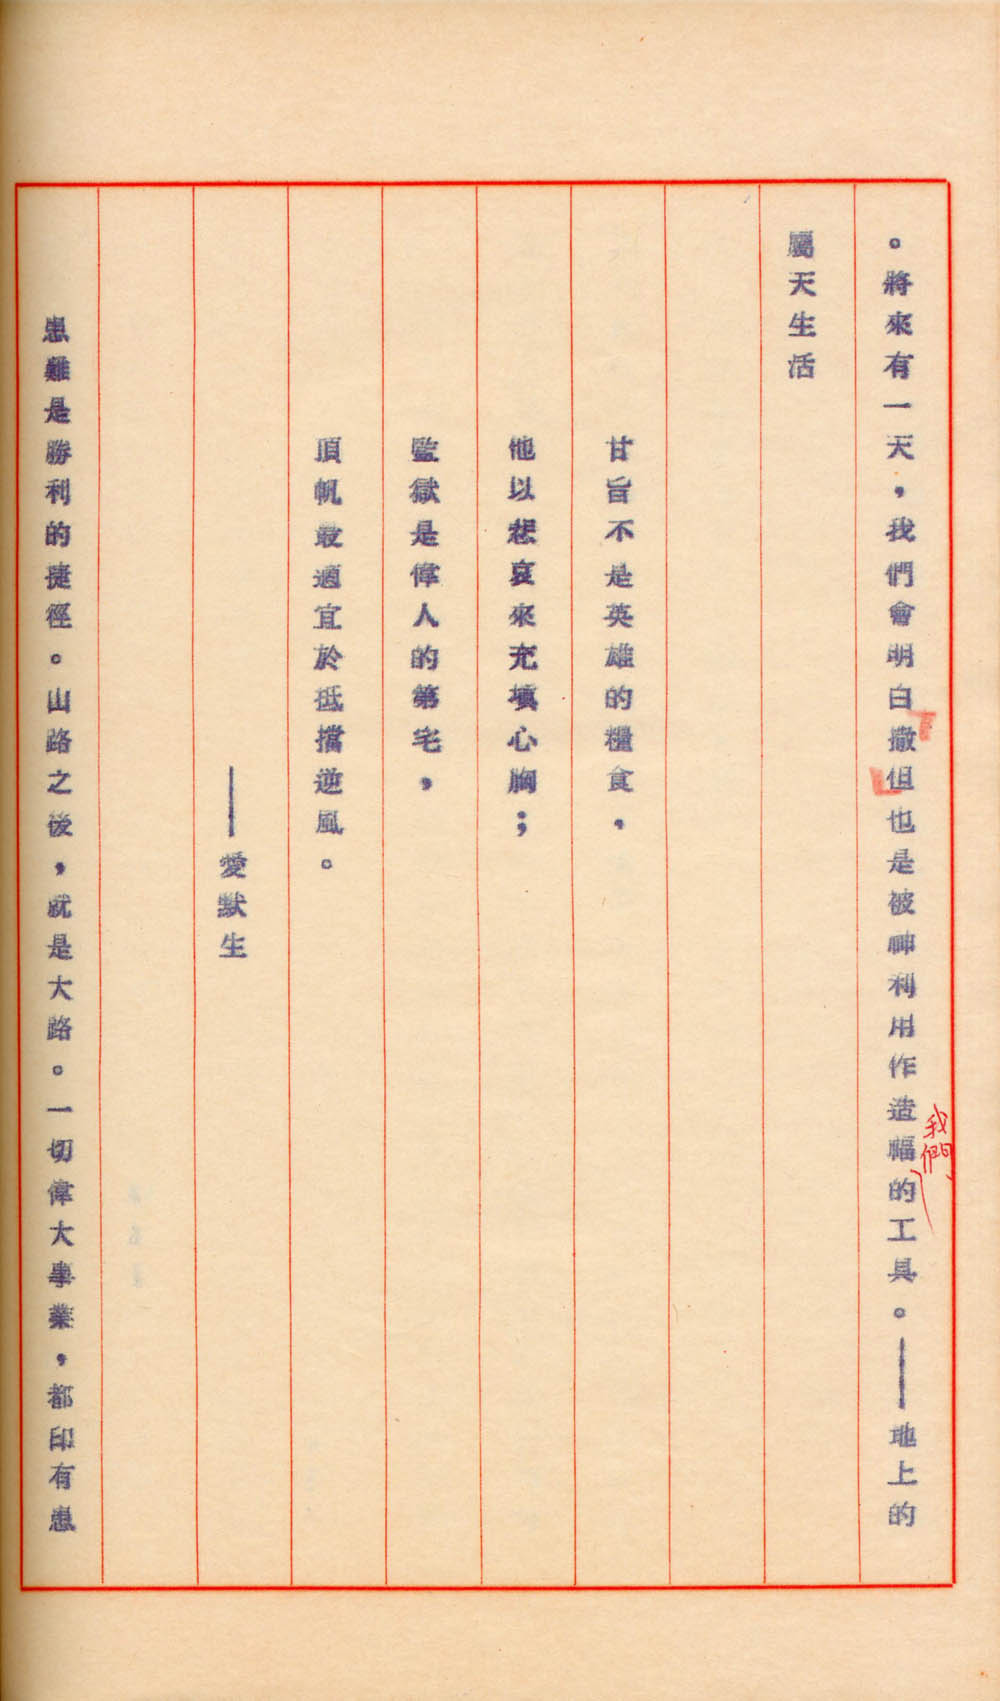 。將來有一天，我們會明白撒但也是被神利用作造福的工具。——地上的
我們
屬天生活
甘旨不是英雄的糧食，
他以悲哀來充塡心胸；
監獄是偉人的第宅，
頂帆最適宜於抵擋逆風。
——愛默生
患難是勝利的捷徑。山路之後，就是大路。一切偉大事業，都印有患